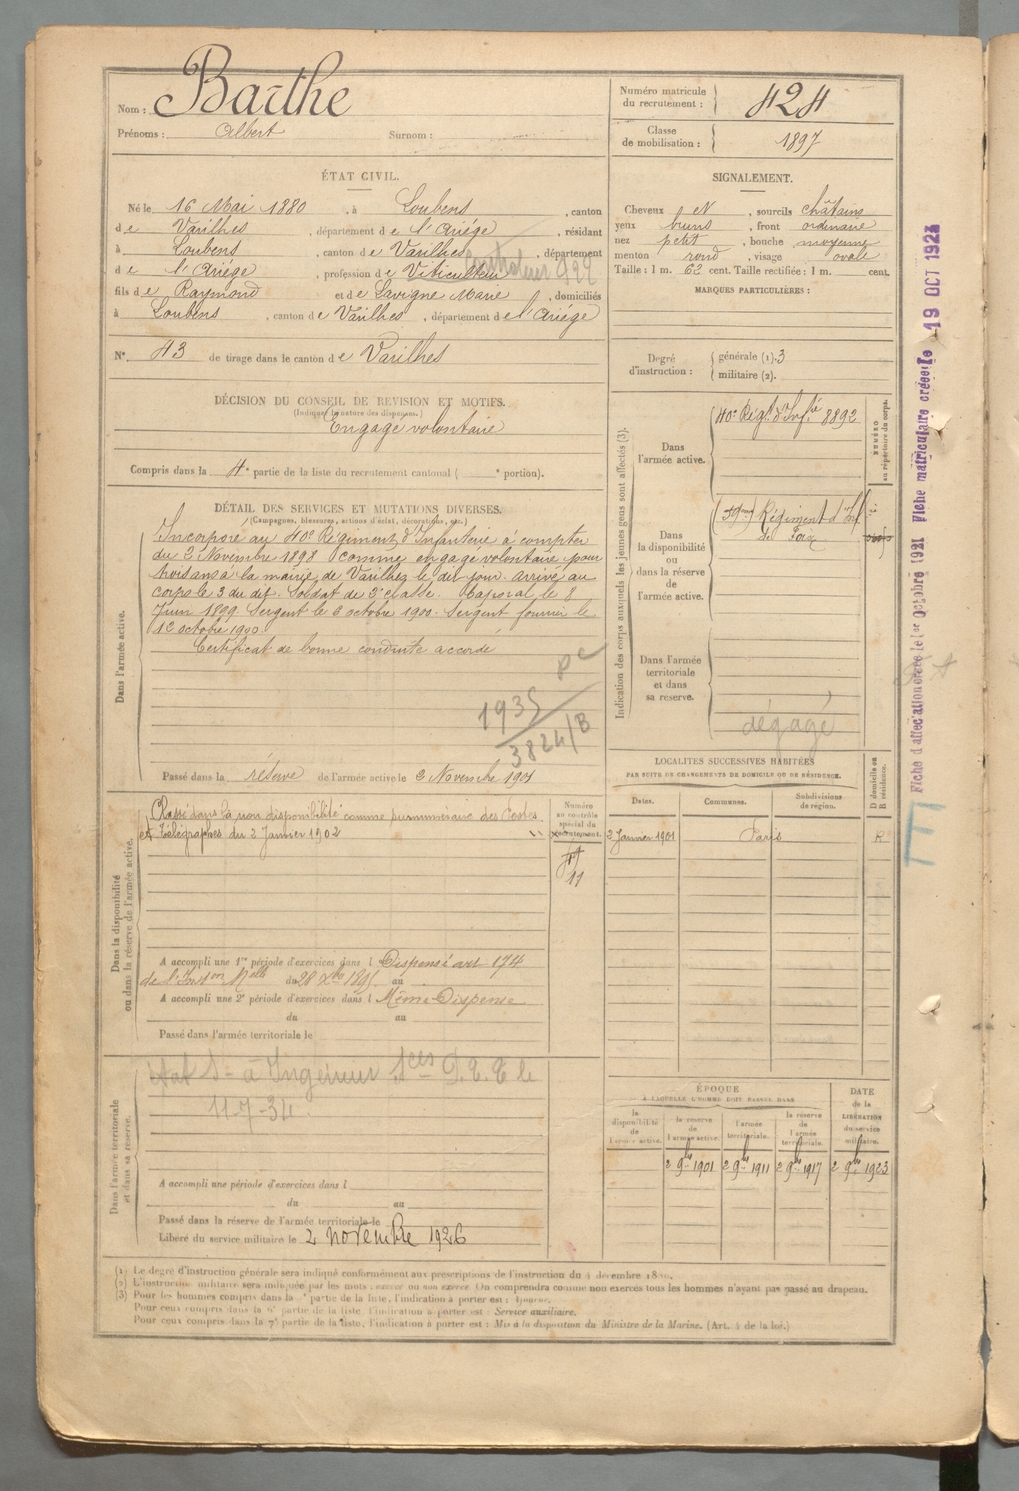 Nom : Barthe
Prénoms : Albert Surnom :
Numéro matricule
du recrutement : 424
Classe
de mobilisation : 1897
ÉTAT CIVIL.
Né le 16 Mai 1880, à Loubens, canton
de Varilhes, département de l'Ariége, résidant
à Loubens, canton de Varilhes, département
de l'Ariége, profession de Viticulteur
fils de Raymond et de Lavigne Marie, domiciliés
à Loubens, canton de Varilhes, département de l'Ariége
N° 43 de tirage dans le canton de Varilhes
SIGNALEMENT.
Cheveux et, sourcils châtains
yeux bruns, front ordinaire
nez petit, bouche moyenne
menton rond, visage ovale
Taille : 1 m. 62 cent. Taille rectifiée : 1 m. cent.
MARQUES PARTICULIÈRES :
Degré
d'instruction :
générale (1). 3
militaire (2).
DÉCISION DU CONSEIL DE REVISION ET MOTIFS.
(Indiquer la nature des dispenses.)
Engagé volontaire
Compris dans la 4e partie de la liste du recrutement cantonal ( e portion).
DÉTAIL DES SERVICES ET MUTATIONS DIVERSES.
(Campagnes, blessures, actions d'éclat, décorations, etc.)
Dans l'armée active.
Incorporé au 40e Régiment d'Infanterie à compter
du 2 Novembre 1898 comme engagé volontaire pour
trois ans à la mairie de Varilhes le dit jour. arrivé au
corps le 3 du dit. Soldat de 2e classe. Caporal le 8
Juin 1899. Sergent le 6 octobre 1900. Sergent fourrier le
1er octobre 1900.
Certificat de bonne conduite accordé
1935
3824/B
Passé dans la réserve de l'armée active le 2 Novembre 1901
Indication des corps auxquels les jeunes gens sont affectés (3).
Dans
l'armée active.
40e Régt d'Infie 8892
NUMÉRO
au répertoire du corps.
Dans
la disponibilité
ou
dans la réserve de
l'armée active.
(59me) Régiment d'Inf
de Foix
Dans l'armée
territoriale
et dans
sa réserve.
dégagé
Dans la disponibilité
ou dans la réserve de l'armée active.
Classé dans la non disponibilité comme surnuméraire des Postes
et Télégraphes du 2 Janvier 1902
Numéro
au contrôle
spécial du
recrutement.
11
A accompli une 1re période d'exercices dans l Dispensé art 174
de l'Inston Melle du 28 Xbre 1895 au
A accompli une 2e période d'exercices dans l Même Dispense
du au
Passé dans l'armée territoriale le
LOCALITES SUCCESSIVES HABITÉES
PAR SUITE DE CHANGEMENTS DE DOMICILE OU DE RÉSIDENCE.
Dates. Communes. Subdivisions
de région.
D domicile ou
R résidence.
2 Janvier 1901 Paris R
Dans l'armée territoriale
et dans sa réserve.
à Ingénieur P.T.T. le
11-7-34
A accompli une période d'exercices dans l
du au
Passé dans la réserve de l'armée territoriale le
Libéré du service militaire le 2 novembre 1926
ÉPOQUE
A LAQUELLE L'HOMME DOIT PASSER DANS
la
disponibilité
de
l'armée active.
la réserve
de
l'armée active.
l'armée
territoriale.
la réserve
de
l'armée
territoriale.
DATE
de la
LIBÉRATION
du service
militaire.
2 9bre 1901 2 9bre 1911 2 9bre 1917 2 9bre 1923
(1) Le degré d'instruction générale sera indiqué conformément aux prescriptions de l'instruction du 4 décembre 1889.
(2) L'instruction militaire sera indiquée par les mots : exercé ou non exercé. On comprendra comme non exercés tous les hommes n'ayant pas passé au drapeau.
(3) Pour les hommes compris dans la partie de la liste, l'indication à porter est :
Pour ceux compris dans la 6e partie de la liste, l'indication à porter est : Service auxiliaire.
Pour ceux compris dans la 7e partie de la liste, l'indication à porter est : Mis à la disposition du Ministre de la Marine. (Art. 4 de la loi.)
Fiche d'affectation créée le 1er Octobre 1921 Fiche matriculaire créée le 19 OCT 1923